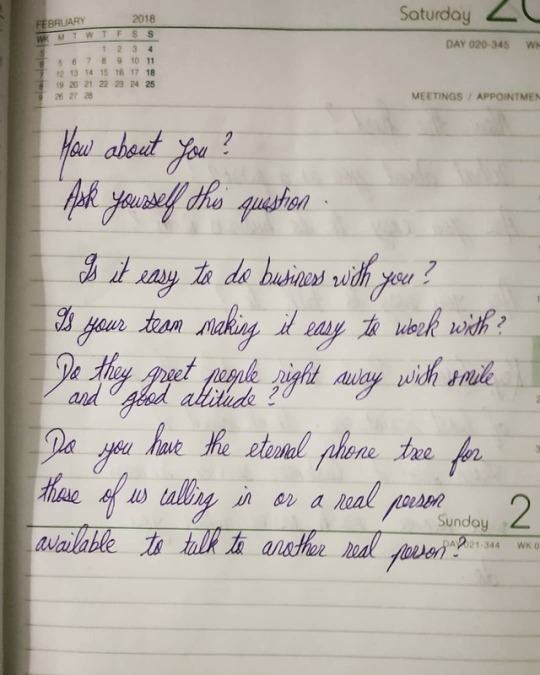 FEBRUARY 2018
WK M T W T F S S
5 1 2 3 4
6 5 6 7 8 9 10 11
7 12 13 14 15 16 17 18
8 19 20 21 22 23 24 25
9 26 27 28
Saturday 20
DAY 020-345 WK
MEETINGS / APPOINTMEN
How about you?
Ask yourself this question.
Is it easy to do business with you?
Is your team making it easy to work with?
Do they greet people right away with smile
and good attitude?
Do you have the eternal phone tree for
those of us calling in or a real person
Sunday 2
available to talk to another real person?
DAY 021-344 WK 0